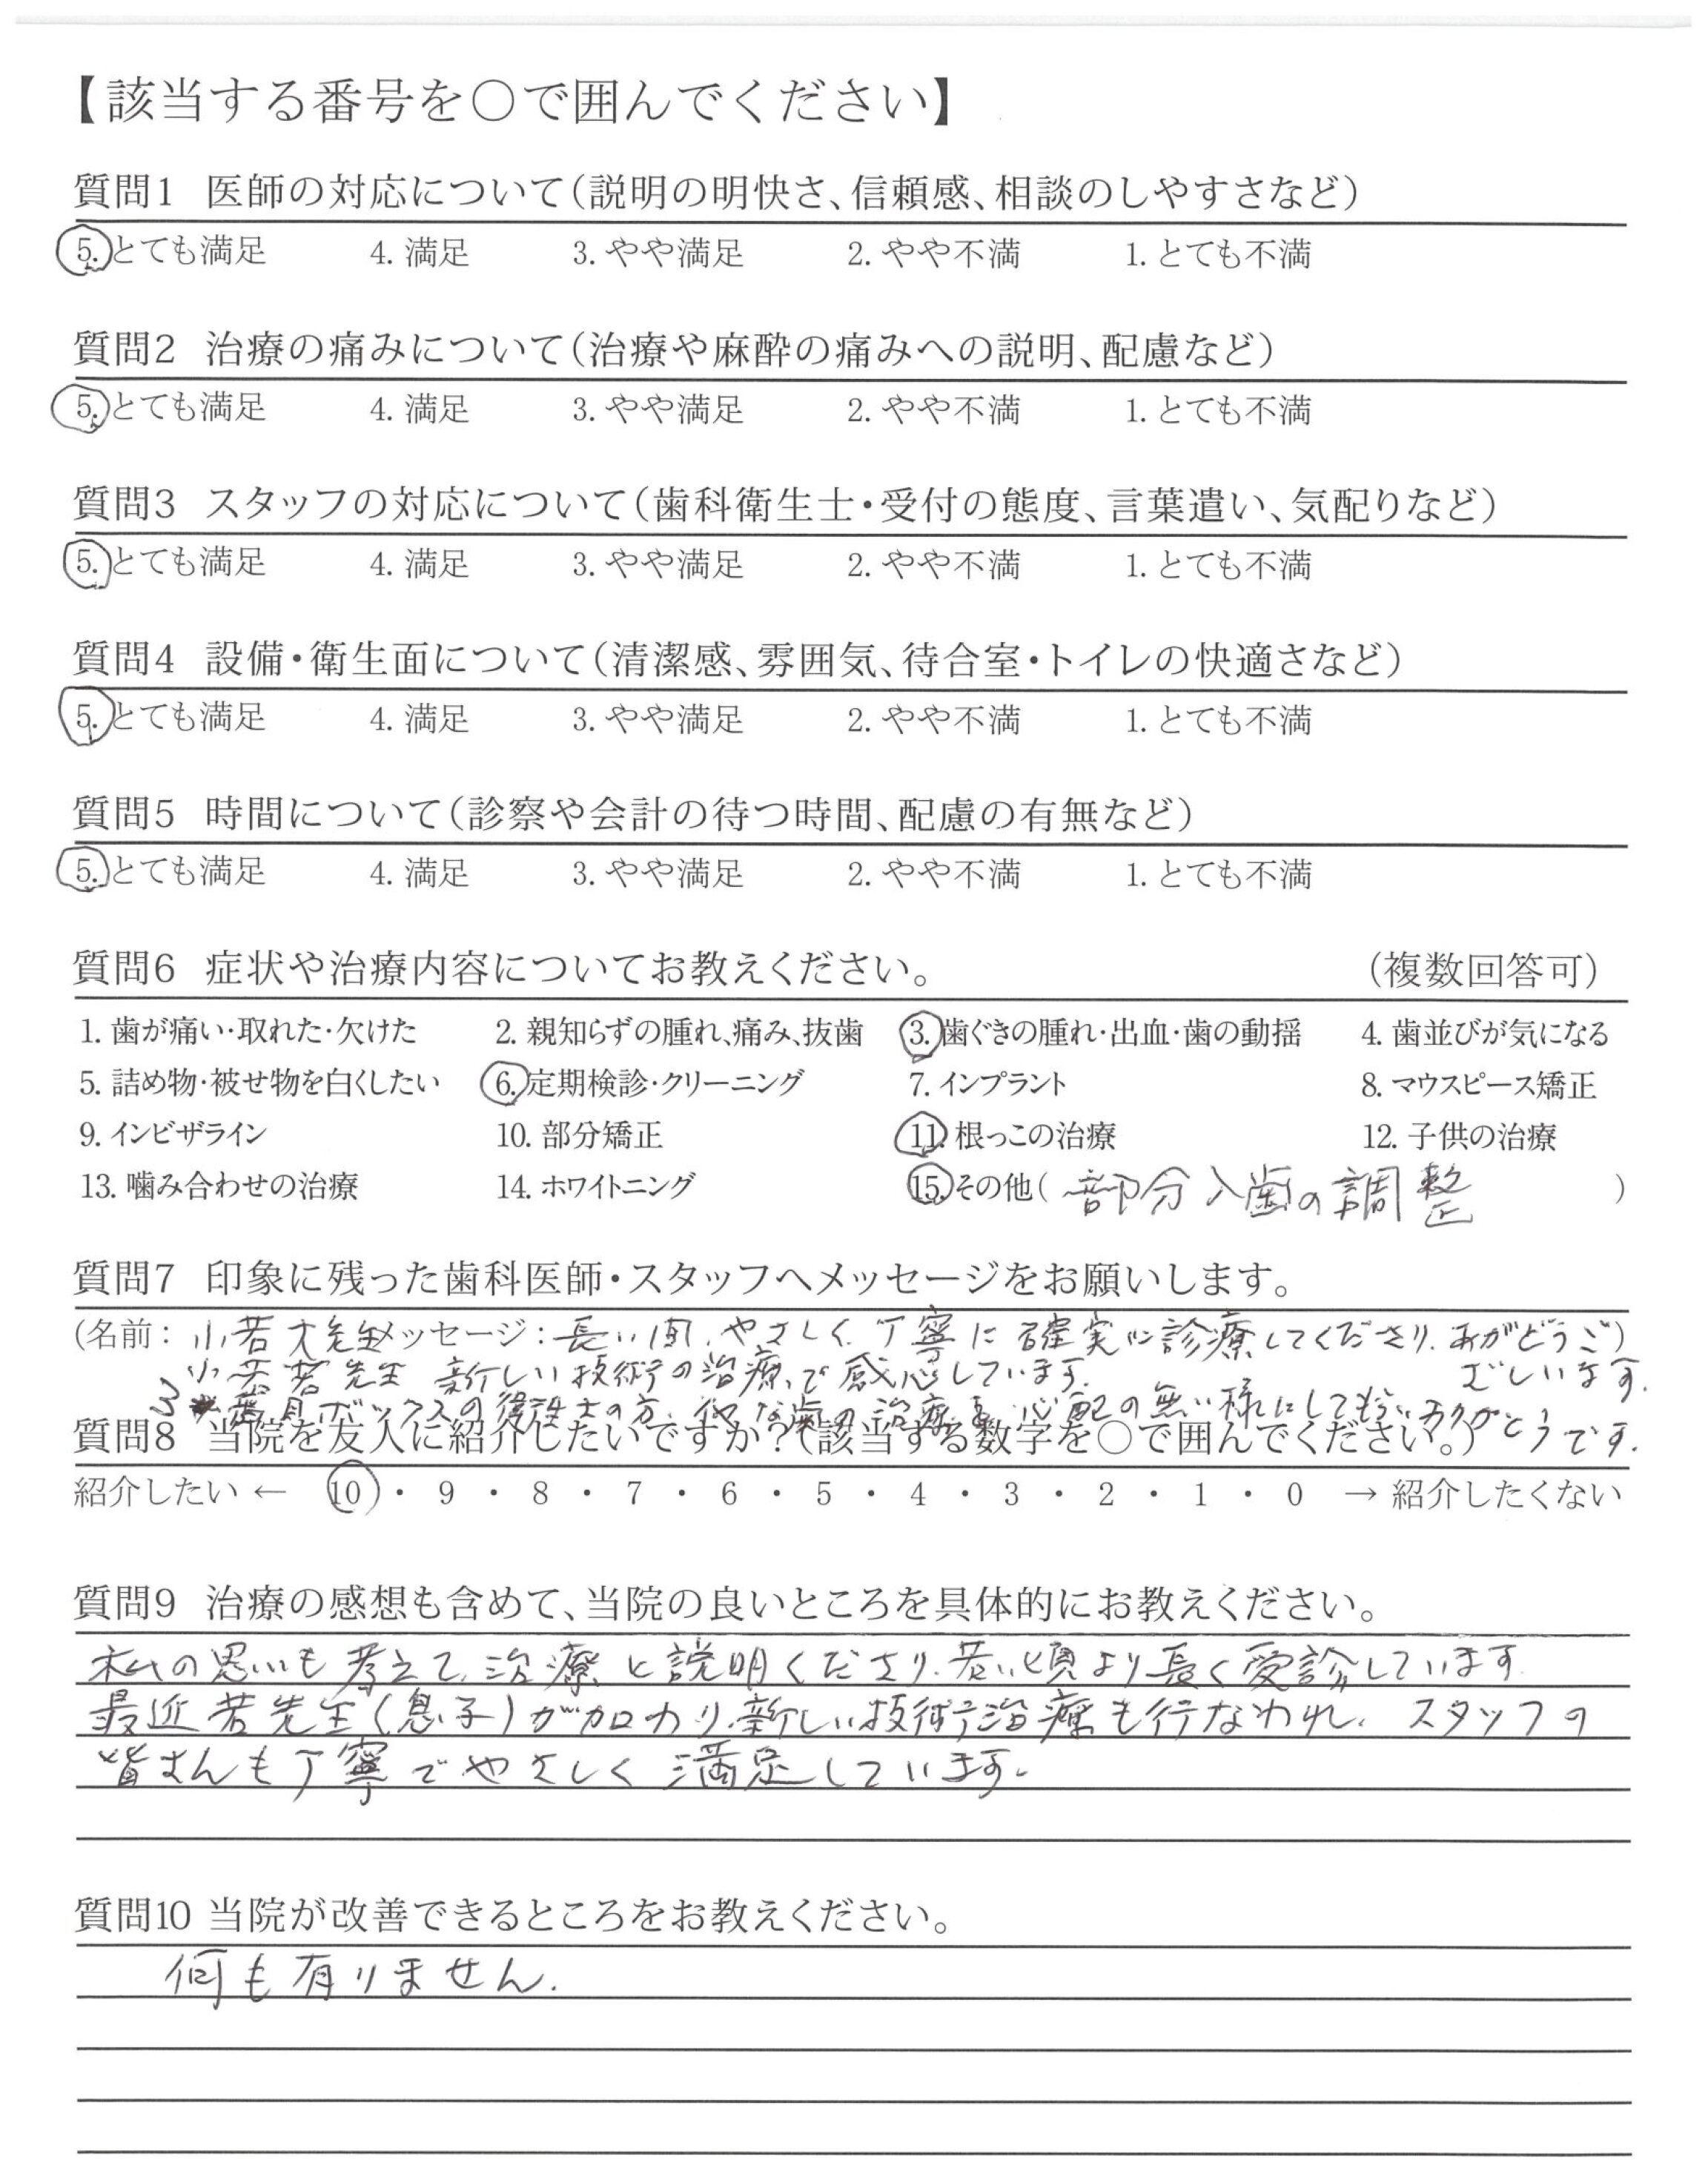 【該当する番号を○で囲んでください】
質問1 医師の対応について(説明の明快さ、信頼感、相談のしやすさなど)
5. とても満足 4. 満足 3. やや満足 2. やや不満 1. とても不満
質問2 治療の痛みについて(治療や麻酔の痛みへの説明、配慮など)
5. とても満足 4. 満足 3. やや満足 2. やや不満 1. とても不満
質問3 スタッフの対応について(歯科衛生士・受付の態度、言葉遣い、気配りなど)
5. とても満足 4. 満足 3. やや満足 2. やや不満 1. とても不満
質問4 設備・衛生面について(清潔感、雰囲気、待合室・トイレの快適さなど)
5. とても満足 4. 満足 3. やや満足 2. やや不満 1. とても不満
質問5 時間について(診察や会計の待つ時間、配慮の有無など)
5. とても満足 4. 満足 3. やや満足 2. やや不満 1. とても不満
質問6 症状や治療内容についてお教えください。 (複数回答可)
1. 歯が痛い・取れた・欠けた 2. 親知らずの腫れ、痛み、抜歯 3. 歯ぐきの腫れ・出血・歯の動揺 4. 歯並びが気になる
5. 詰め物・被せ物を白くしたい 6. 定期検診・クリーニング 7. インプラント 8. マウスピース矯正
9. インビザライン 10. 部分矯正 11. 根っこの治療 12. 子供の治療
13. 噛み合わせの治療 14. ホワイトニング 15. その他( 部分入歯の調整 )
質問7 印象に残った歯科医師・スタッフへメッセージをお願いします。
(名前: 大先生 メッセージ: 長い間、やさしく、丁寧に確実に診療してくださり、ありがとうご)
ざいます。
若先生 新しい技術の治療で感心しています。
ボックスの衛生士の方、 歯の治療を心配の無い様にして
質問8 当院を友人に紹介したいですか?(該当する数字を○で囲んでください。)
紹介したい ← 10 ・ 9 ・ 8 ・ 7 ・ 6 ・ 5 ・ 4 ・ 3 ・ 2 ・ 1 ・ 0 → 紹介したくない
質問9 治療の感想も含めて、当院の良いところを具体的にお教えください。
私の思いも考えて、治療と説明くださり、若い頃より長く受診しています
最近若先生(息子)が加わり、新しい技術治療も行なわれ、スタッフの
皆さんも丁寧でやさしく満足しています。
質問10 当院が改善できるところをお教えください。
何も有りません.